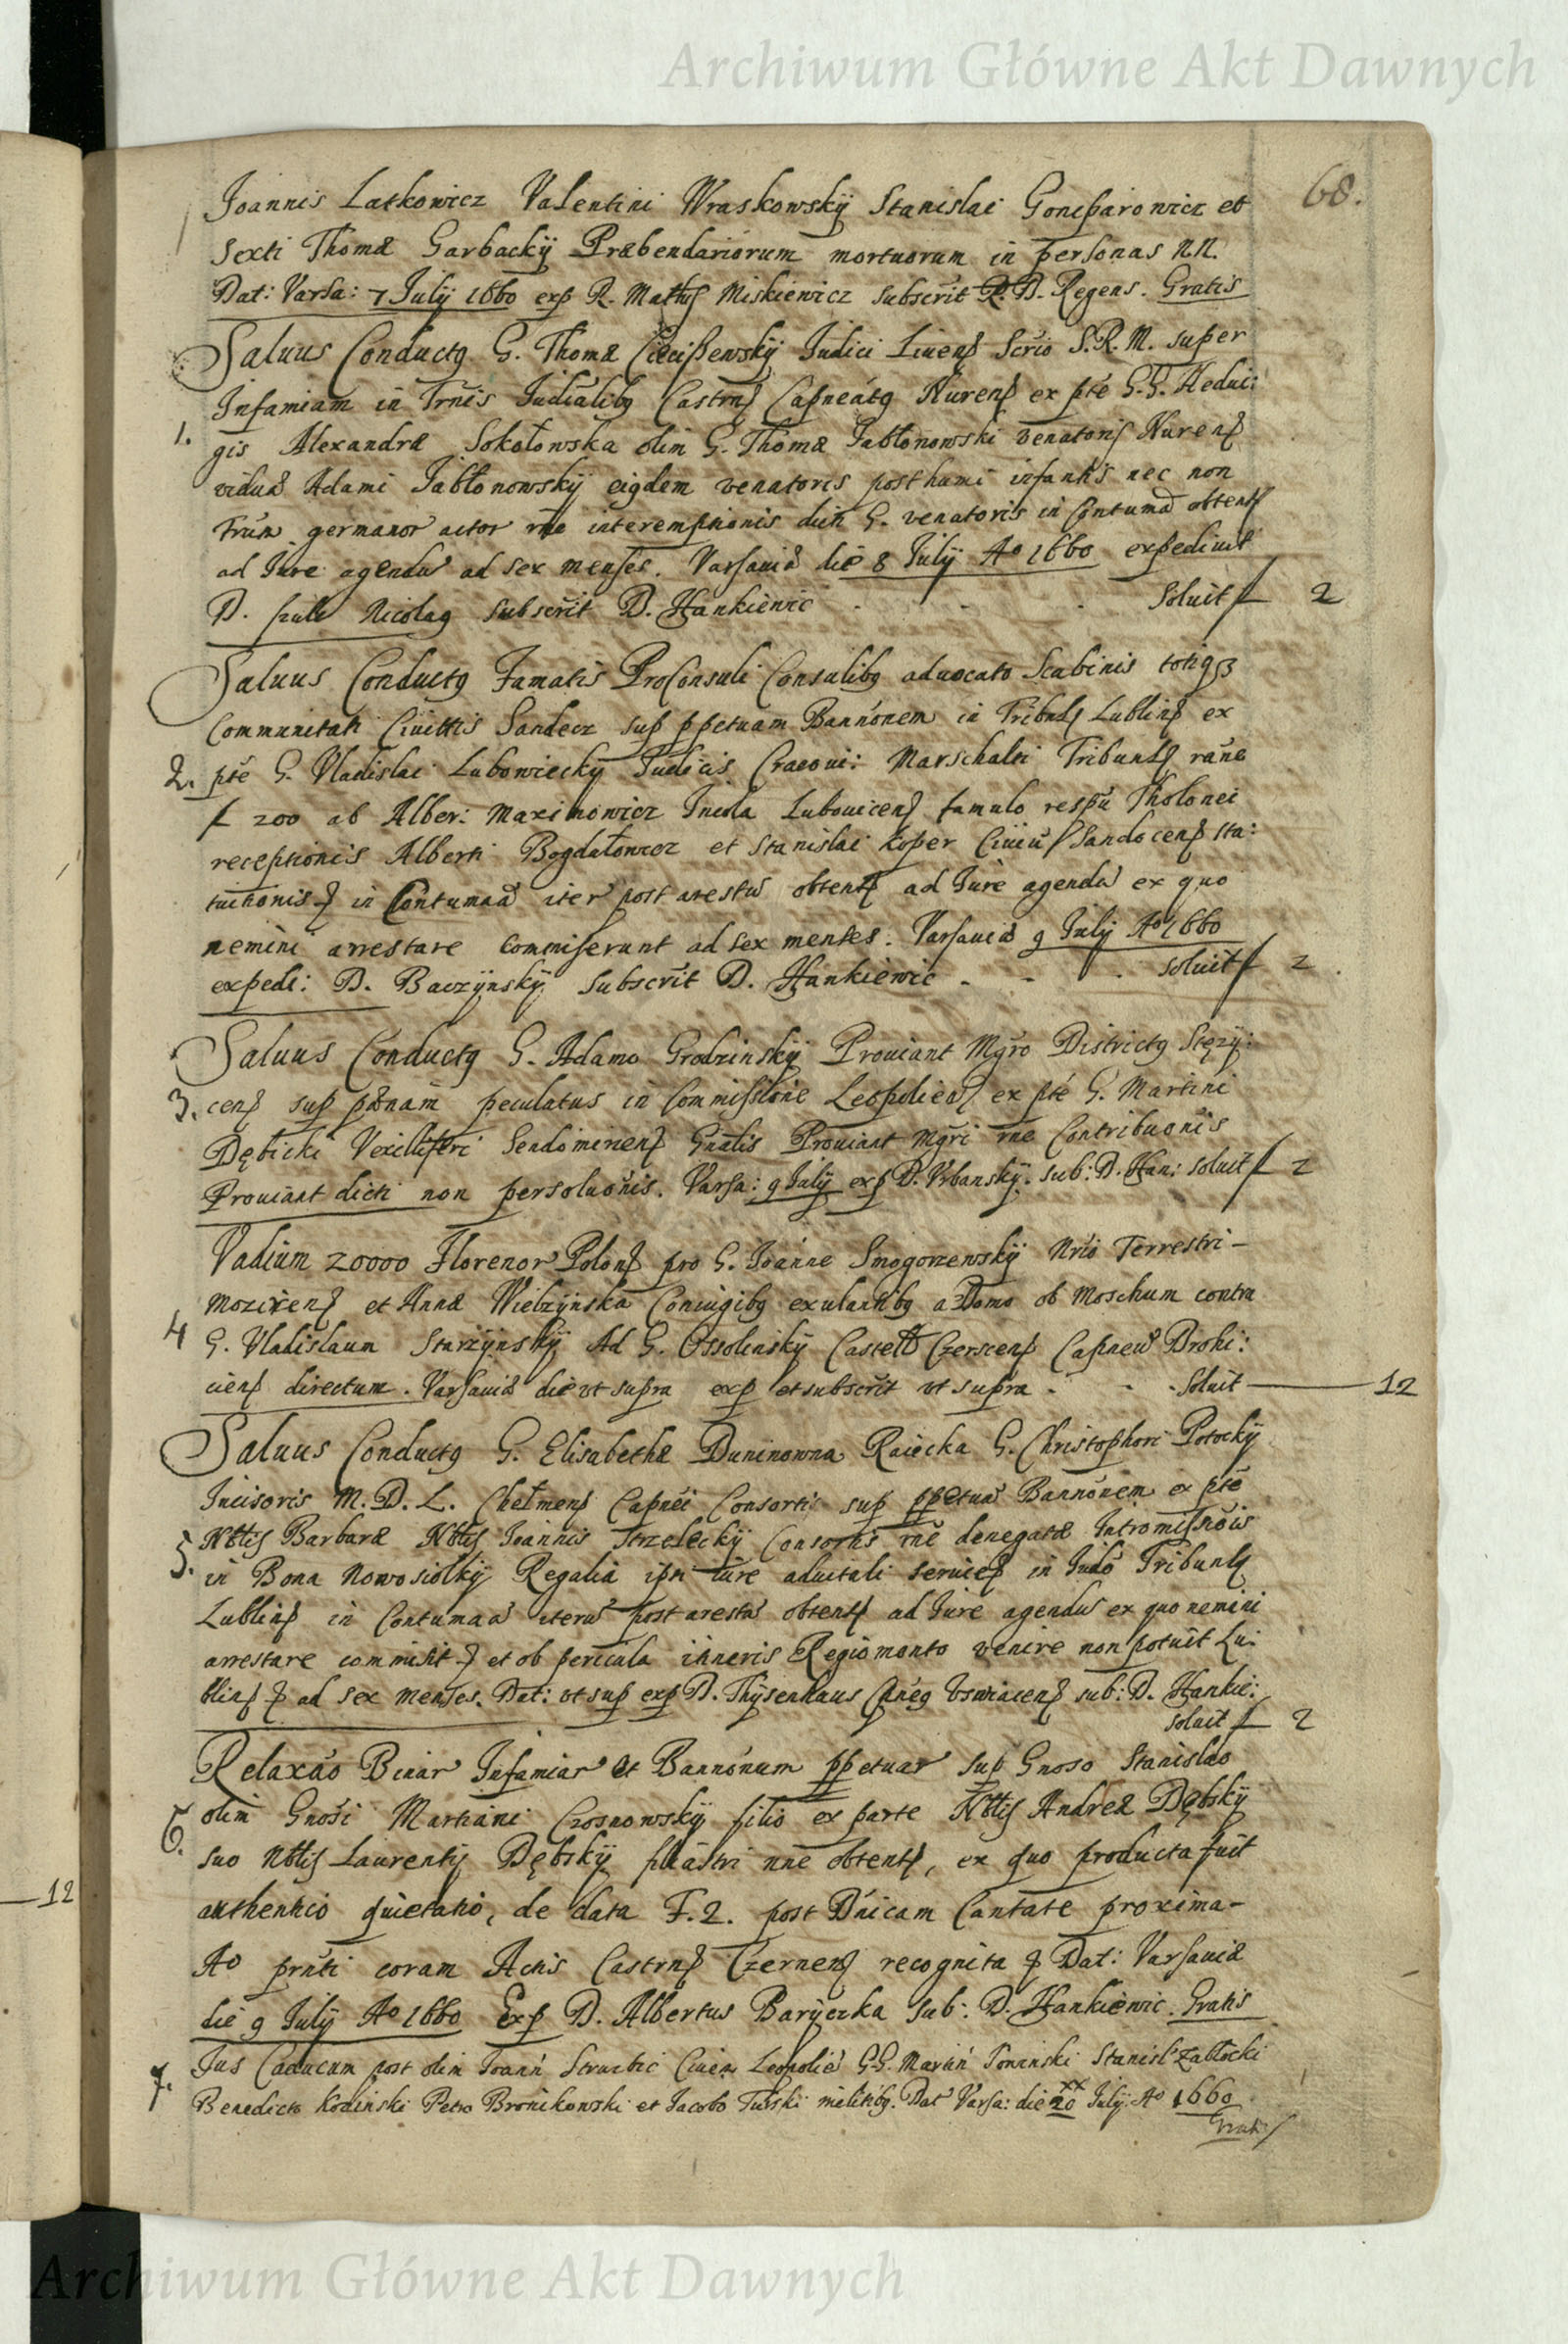 Archiwum Główne Akt Dawnych
68.
Joannis Latkowicz Valentini Wraskowskÿ Stanislai Gonsparowicz et
Sexti Thomæ Garbackÿ Præbendariorum mortuorum in personas NN.
Dat: Varsa: 7 Julÿ 1660 exp R. Miskiewicz Subscrit R. D. Regens. Gratis
Saluus Conductq G. Thomæ Judici Liuens Scrio S.R.M. super
Infamiam in Trnis Judialibq Castrns Capneatq Nurens ex pte G.G. Hedui:
1. gis Alexandræ Sokołowska olim G. Thomæ Jabłonowski venatoris Nurens
viduæ Adami Jabłonowskÿ eiqdem venatoris posthumi infantis nec non
Frūm germanor actor rne interemptionis dicti G. venatoris in Contuma obtent
ad Jure agendū ad sex menses. Varsauiæ die 8 Julÿ Aº 1660 expediuit
D. Nicolaq Subscrit D. Hankiewic . . . Soluit f 2
Saluus Conductq Famatis ProConsuli Consulibq aduocato Scabinis totiqз
Communitati Ciuittis Sandecz sup ppetuam Bannonem in Tribnls Lublins ex
2. pte G. Vladislai Lubowieckÿ Judicis Cracoui: Marschalci Tribunls rane
f 200 ab Alber: Maximowicz Incola Lubouicens famulo respu Tholonei
receptionis Alberti Bogdałowicz et Stanislai Koper Ciuiū Sandecens sta:
tuitionis in Contumaā iter post arestū obtent ad Jure agendū ex quo
nemini arrestare commiserunt ad sex menses. Varsauiæ 9 Julÿ Aº 1660
expedi: D. Baczÿnskÿ Subscrit D. Hankiewic . - . soluit f 2
Saluus Conductq G. Adamo Grodzinskÿ Prouiant Mgro Districtq Stęzÿ:
3. cens sup pænam peculatus in Commissione Leopoliens ex pte G. Martini
Dębicki Vexilliferi Sendomiriens Gnalis Prouiant Mgri rne Contribuonis
Prouiant dicti non persoluonis. Varsa: 9 Julÿ exp D. Vrbanskÿ. sub: D. Han: soluit f 2
Vadium 20000 Florenor Polons pro G. Joanne Smogorzewskÿ Nrio Terrestri-
Mozirens et Annæ Wielzÿnska Coniugibq exulantibq a Domo ob Moschum contra
4 G. Vladislaum Starzÿnskÿ Ad G. Ossolinskÿ Castell Czerscens Capneū Drohi:
ciens directum. Varsauiæ die vt supra exp et subscrit vt supra . - . Soluit — 12
Saluus Conductq G. Elisabethæ Duninowna Raiecka G. Christophori Potockÿ
Incisoris M.D.L. Chełmens Capnei Consorti sup ppetuā Bannonem ex pte
5. Nblis Barbaræ Nblis Joannis Strzeleckÿ Consortis rne denegatæ Intromissiois
in Bona Nowosiolkÿ Regalia ipsi iure aduitali seruien in Judo Tribunls
Lublins in Contumaā iterū post arestū obtent ad Jure agendū ex quo nemini
arrestare commisit et ob pericula itineris Regiomonto venire non potuit Lu:
blins ad sex menses. Dat: vt sup exp D. Thÿsenhaus sub: D. Hankie:
soluit f 2
Relaxao Binar Infamiar et Bannonum ppetuar sup Gnoso Stanislao
6. olim Gnosi Martiani Czosnowskÿ filio ex parte Nblis Andreæ Dębskÿ
suo Nblis Laurentÿ Dębskÿ nne obtent, ex quo producta fuit
authentica quietatio, de data F. 2. post Dnicam Cantate proxima-
Aº prnti coram Actis Castrns Czernens recognita Dat: Varsauiæ
die 9 Julÿ Aº 1660 Exp D. Albertus Barÿczka sub: D. Hankiewic. Gratis
7. Jus Caducum post olim Joann Ciuem Leopolie G.G. Stanisl Zabłocki
Benedicto Kozinski Petro Bronikowski et Jacobo Turski militibq. Dat Varsa: die 20 Julÿ Aº 1660
xx
Gratis
—12
Archiwum Główne Akt Dawnych